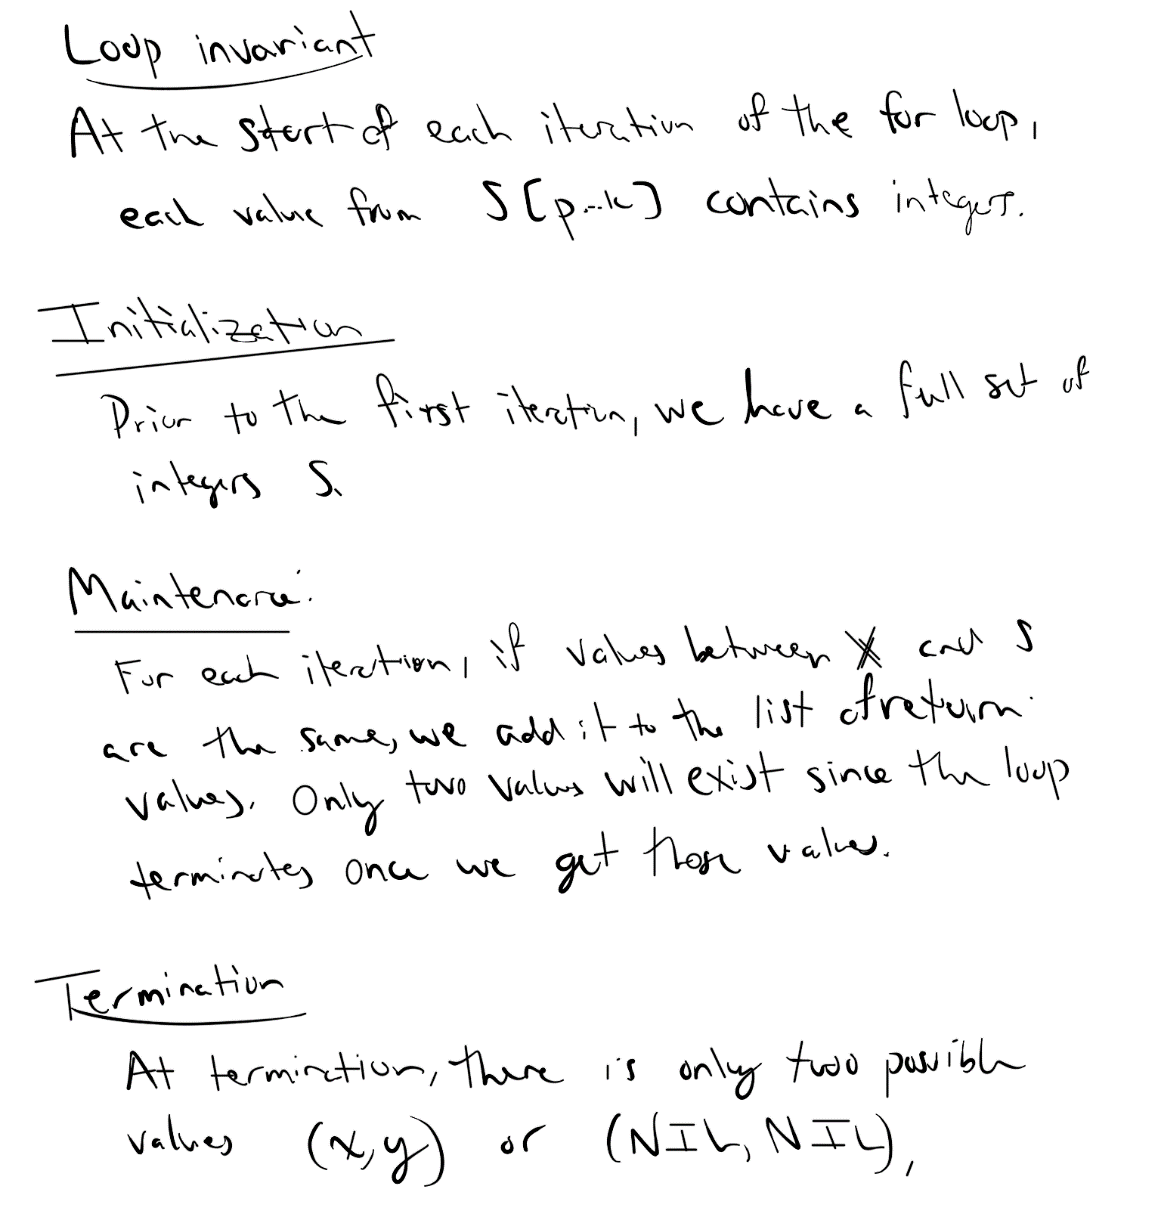 Loop invariant
At the start of each iteration of the for loop,
each value from S[p...k] contains integers.
Initialization
Prior to the first iteration, we have a full set of
integers S.
Maintenance:
For each iteration, if values between X and S
are the same, we add it to the list of return
values. Only two values will exist since the loop
terminates once we get those values.
Termination
At termination, there is only two possible
values (x,y) or (NIL, NIL),